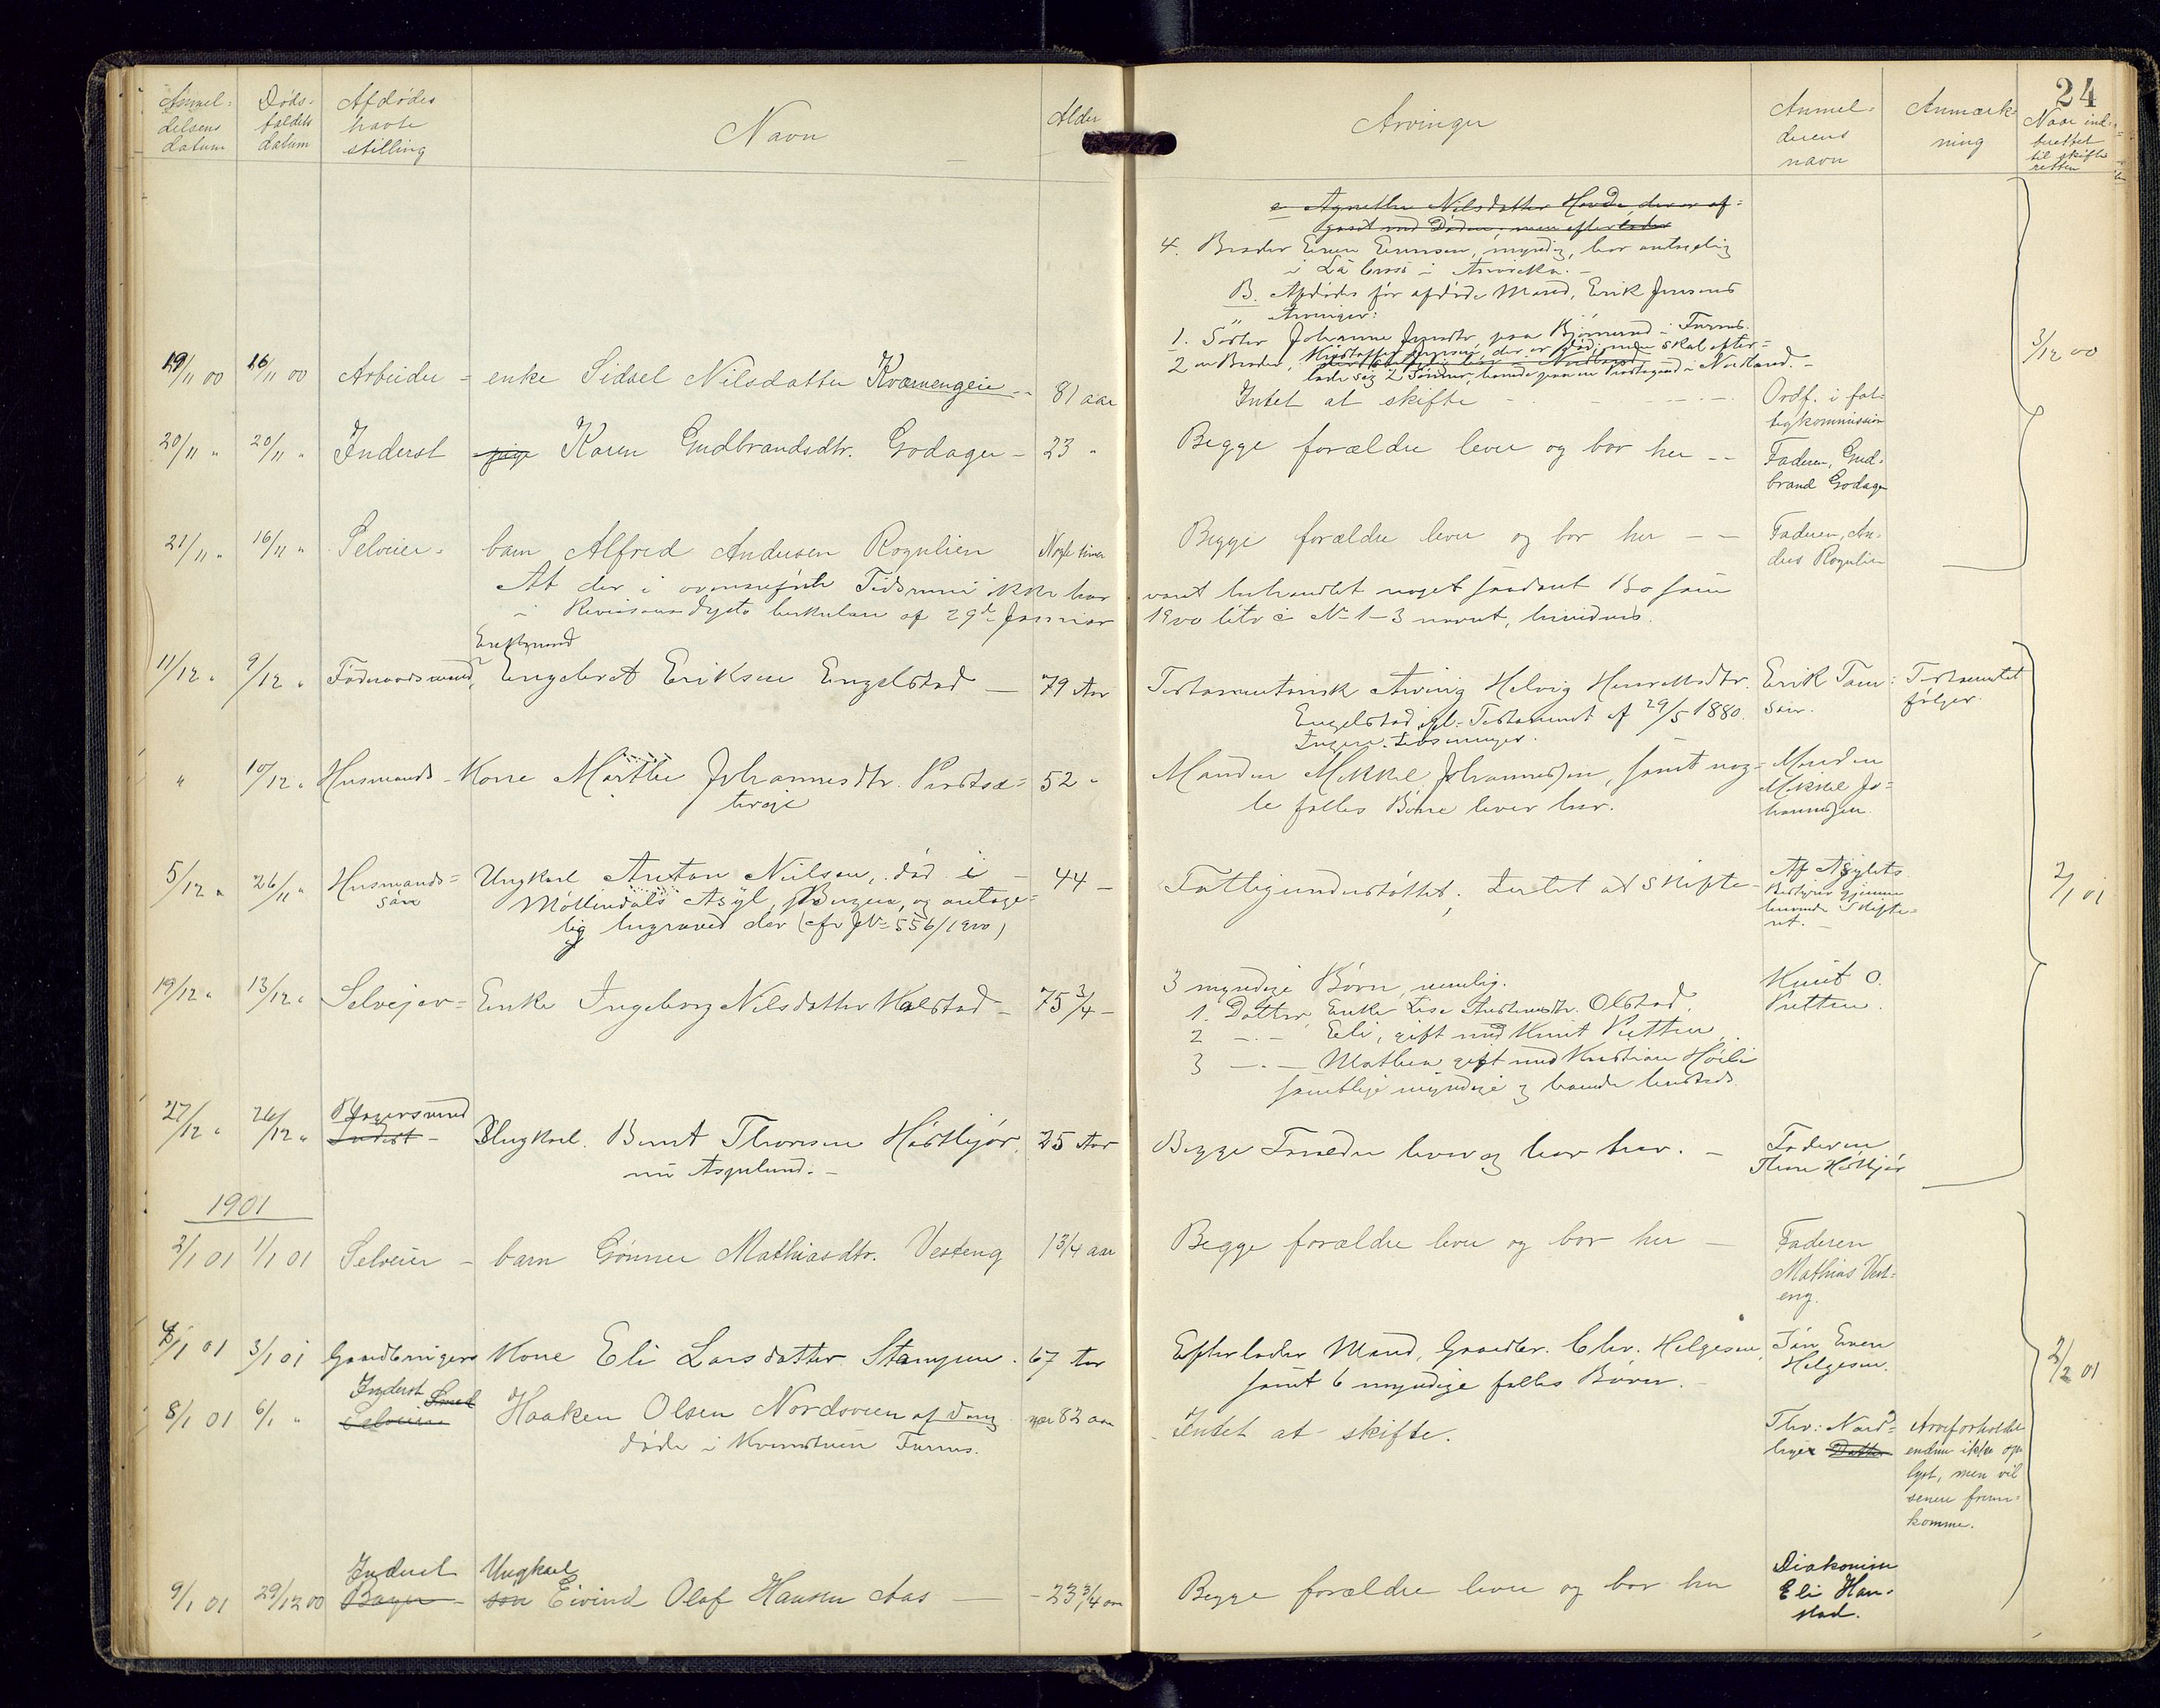 24
Anmel-
delsens
datum
Døds-
faldets
datum
Afdødes
havte
stilling
Navn
Alder
Arvinger
Anmel-
derens
navn
Anmærk-
ning
Naar ind-
berettet
til skifte
retten
e Agnethe Nilsdatter Hovde, der er af-
gaaet ved Døden, men efterlader
4. Broder Even Evensen, myndig, bor antagelig
i La Crosse i Amerika. -
B. Afdødes før afdøde Mand, Erik Jensens
Arvinger:
1. Søster Johanne Jensdtr, paa Bjørnerud i Furnes.
2 en Broder, Kristoffer Jensen, der er død; men skal efter-
lade sig 2 Sønner, boende paa en Prestegaard i Nordland. -
19/11 00 16/11 00 Arbeider - enke Sidsel Nilsdatter Kværnengeie - 81 aar
Intet at skifte
Ordf. i fat-
tigkommission
3/12 00
20/11 " 20/11 " Inderst pige Karen Gudbrandsdtr. Godager - 23 "
Begge forældre lever og bor her --
Faderen, Gud-
brand Godager
21/11 " 16/11 " Selveier- barn Alfred Andersen Rognlien Nogle timer
Begge forældre lever og bor her --
Faderen, An-
ders Rognlien
At der i ovenanførte Tidsrum ikke har været behandlet noget saadant Bo som
i Revisionsdepts cirkulære af 29de Januar 1900 litr c No 1-3 nævnt, bevidnes.
Enkemand
11/12 " 9/12 " Føderaadsmand, Engebret Eriksen Engelstad - 79 Aar
Testamentarisk Arving Helvig Henriksdtr.
Engelstad ifl. Testament af 29/5 1880.
Ingen Livsarvinger.
Erik Tom-
Testamentet
følger.
" 10/12 " Husmands- Kone Marthe Johannesdtr. Prestsæ- 52 "
tereie
Manden Mikkel Johannessen, samt nog-
le fælles Børn lever her.
Manden
Mikkel Jo-
hannessen
5/12 " 26/11 " Husmands-
søn
Ungkarl Anton Nielsen, død i - 44 -
Møllendals Asyl, Bergen, og antage-
lig begravet der (cfr JNo 556/1900)
Fattigunderstøttet, Intet at skifte -
Af Asylets
Bestyrer gjennem
herværende Skifte-
ret. -
2/1 01
19/12 " 13/12 " Selvejer- Enke Ingeborg Nilsdatter Kolstad - 75 3/4 -
3 myndige Børn, nemlig.
1. Datter, Enke Lise Andersdtr. Olstad,
2 -.- Eli, gift med Knut Pütten
3 -.- Mathea gift med Kristian Høili
samtlige myndige og boende hersteds.
Knut O.
Pütten.
27/12 " 26/12 " Bogersmand
Inderst -
Ungkarl. Bernt Thoresen Hørthjør. 25 Aar
nu Asgelund. -
Begge Forældre lever og bor her. -
Faderen
Thore Hørthjør
1901
2/1 01 1/1 01 Selveier - barn Gunner Mathiasdtr. Vesteng 1 3/4 aar
Begge forældre lever og bor her -
Faderen
Mathias Vest-
eng.
4/1 01 3/1 01 Gaardbrugers Kone Eli Larsdatter Stangen. 67 Aar
Efterlader Mand, Gaardbr. Chr. Helgesen,
samt 6 myndige fælles Børn. -
Søn Even
Helgesen.
2/2 01
8/1 01 6/1 " Inderst Smed
Selveier
Haaken Olsen Nordsveen af Vang
døde i Kvernstuen Furnes.
nær 82 aar
Intet at skifte.
Arveforholdet
endnu ikke op-
lyst, men vil
senere frem-
komme.
9/1 01 29/12 00 Inderst
Bager -
Ungkarl
søn Eivind Olaf Hansen Aas - 23 3/4 aar
Begge forældre lever og bor her
Diakonisse
Eli Han-
stad.